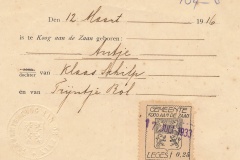 Den 12 Maart 1916
is te Koog aan de Zaan geboren:
Antje
dochter van Klaas Schilp
en van Trijntje Bol
GEMEENTE
KOOG AAN DE ZAAN
1933
LEGES f 0.25